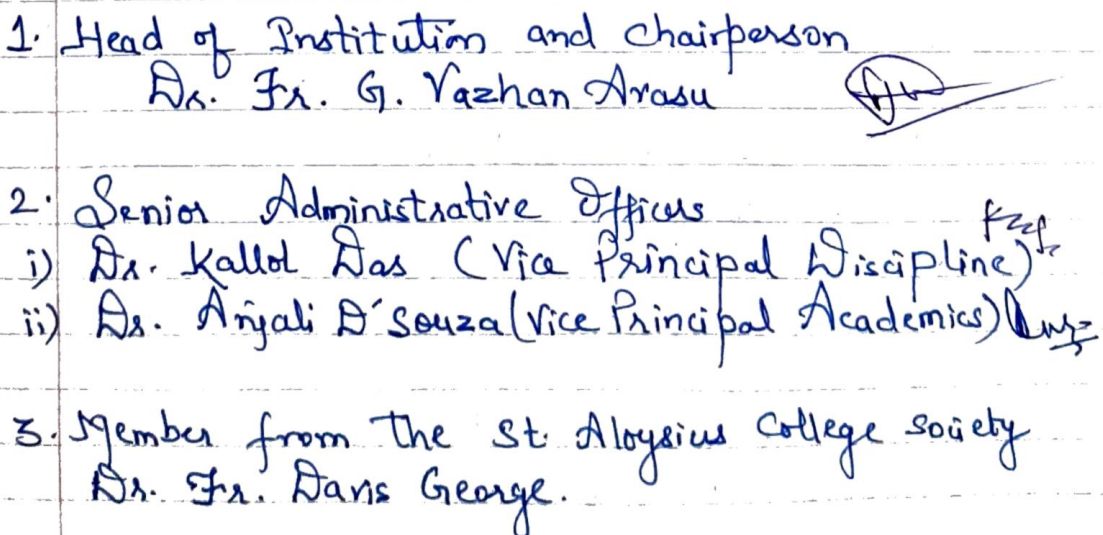 1. Head of Institution and Chairperson
Dr. Fr. G. Vazhan Arasu
2. Senior Administrative Officers
i) Dr. Kallol Das (Vice Principal Discipline)
ii) Dr. Anjali D'Souza (Vice Principal Academics)
3. Member from the St. Aloysius College Society
Dr. Fr. Davis George.